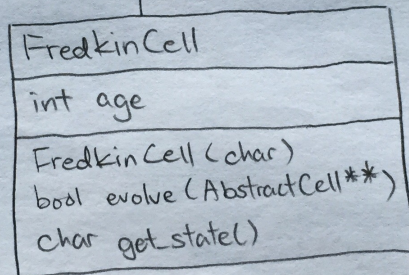 FredkinCell
int age
FredkinCell(char)
bool evolve(AbstractCell**)
char get_state()